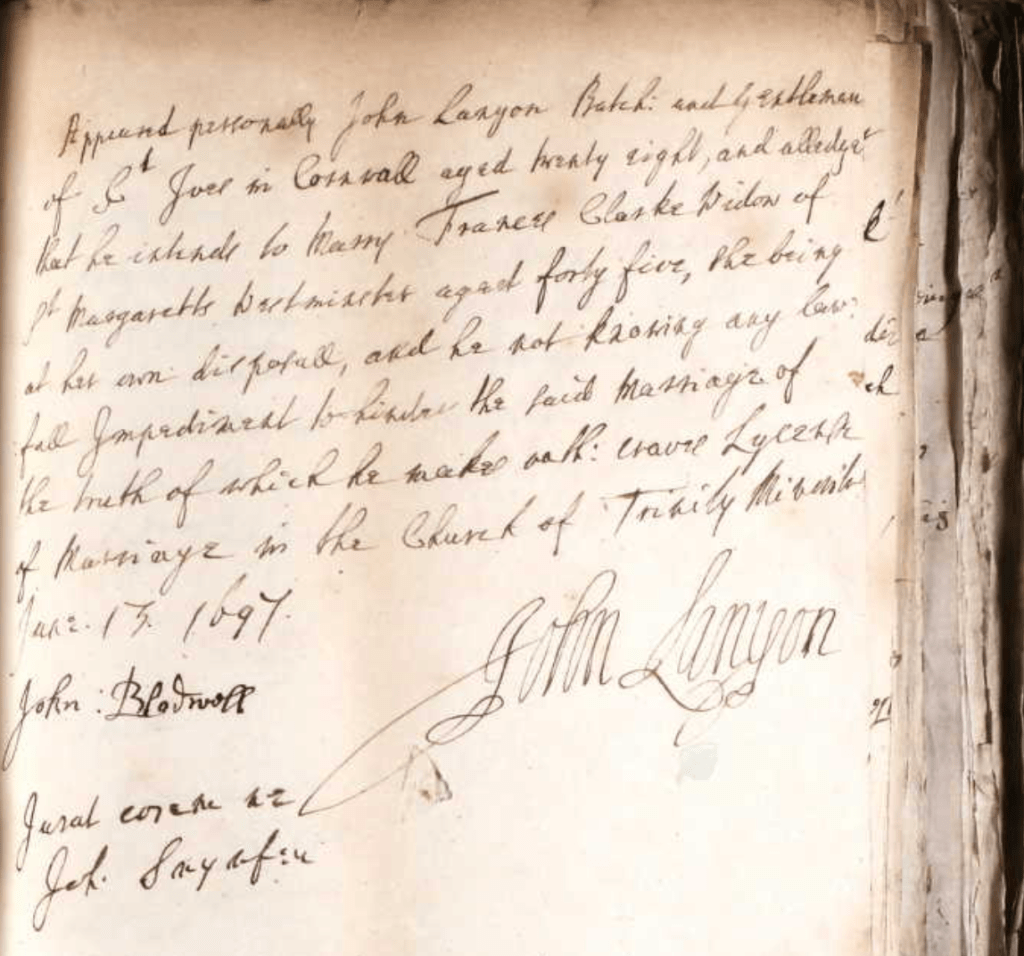 Appeared personally John Lanyon Batch: and Gentleman
of St Ives in Cornwall aged twenty eight, and alledget
that he intends to Marry Frances Clarke Widow of
St Margaretts Westminster aged forty five, she being
at her own disposall, and he not knowing any law:
full Impediment to hinder the said Marriage of
the truth of which he makes oath: craves Lycense
of Marriage in the Church of Trinity Minories
June. 13. 1697.
John Lanyon
John: Blodwell
Jurat coram me
Joh.